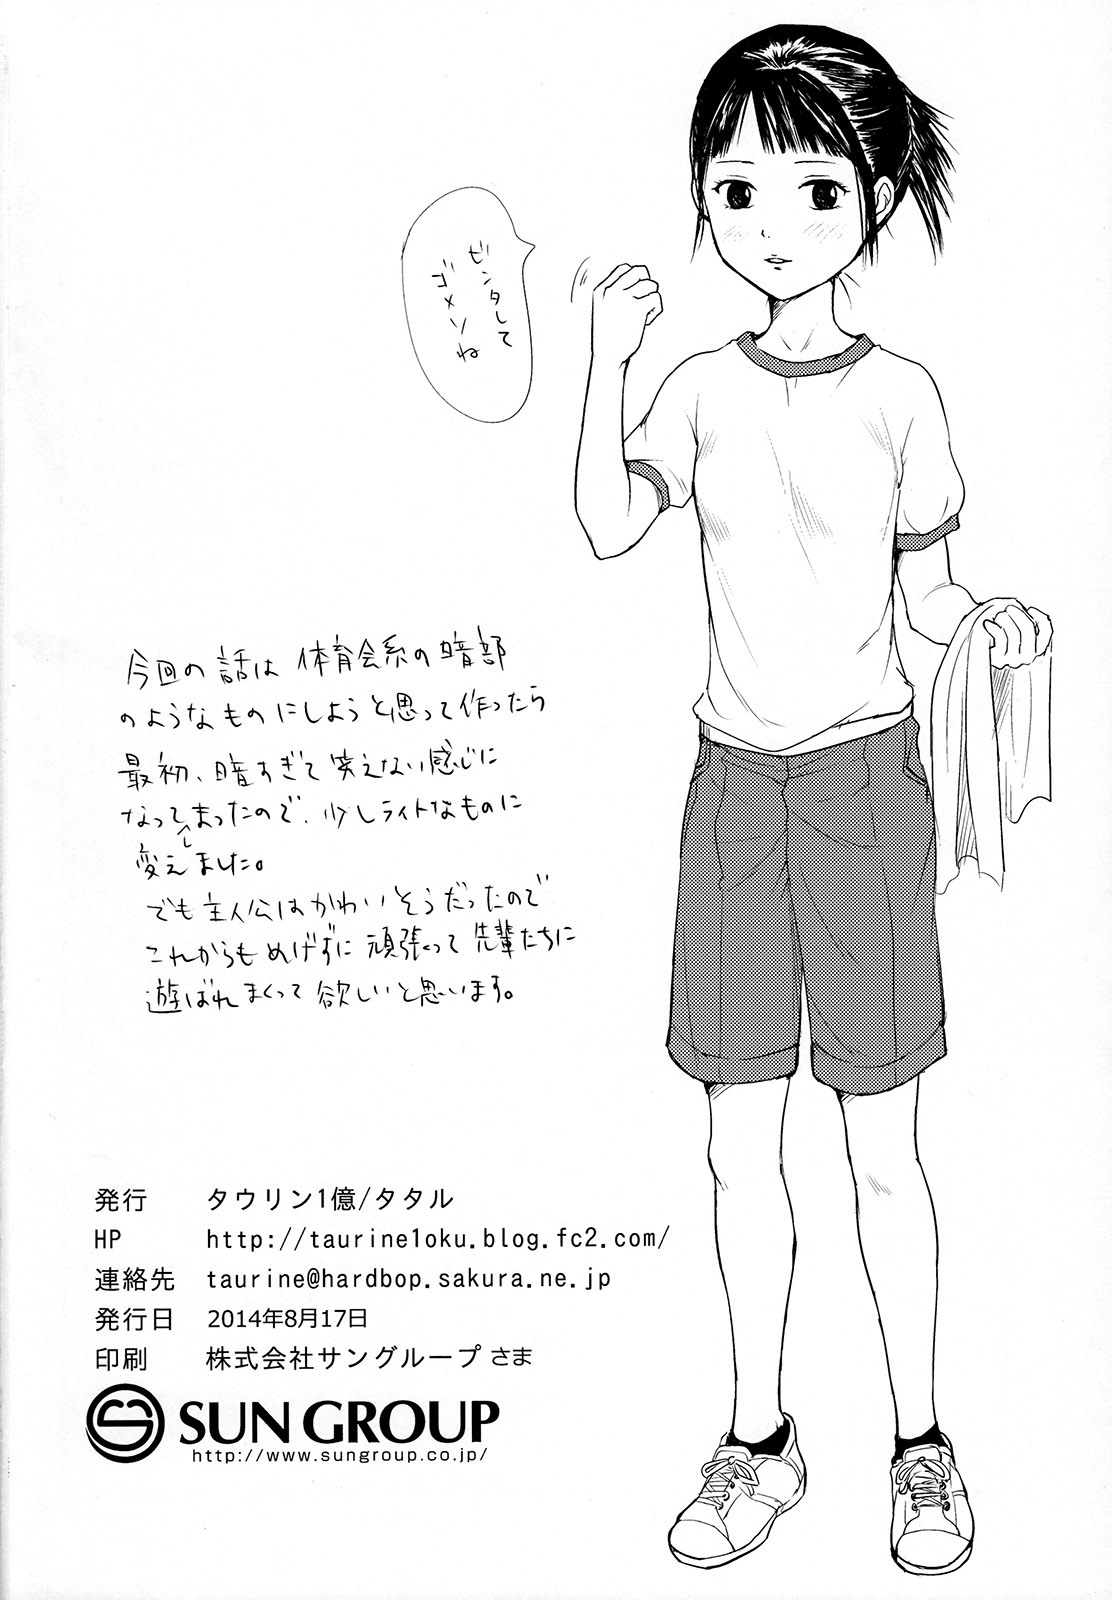 ビンタして
ゴメンね
今回の話は 体育会系の暗部
のようなものにしようと思って作ったら
最初、暗すぎて笑えない感じに
なってしまったので、少しライトなものに
変えました。
でも主人公はかわいそうだったので
これからもめげずに頑張って先輩たちに
遊ばれまくって欲しいと思います。
発行 タウリン1億/タタル
HP http://taurine1oku.blog.fc2.com/
連絡先 taurine@hardbop.sakura.ne.jp
発行日 2014年8月17日
印刷 株式会社サングループ さま
SUN GROUP
http://www.sungroup.co.jp/